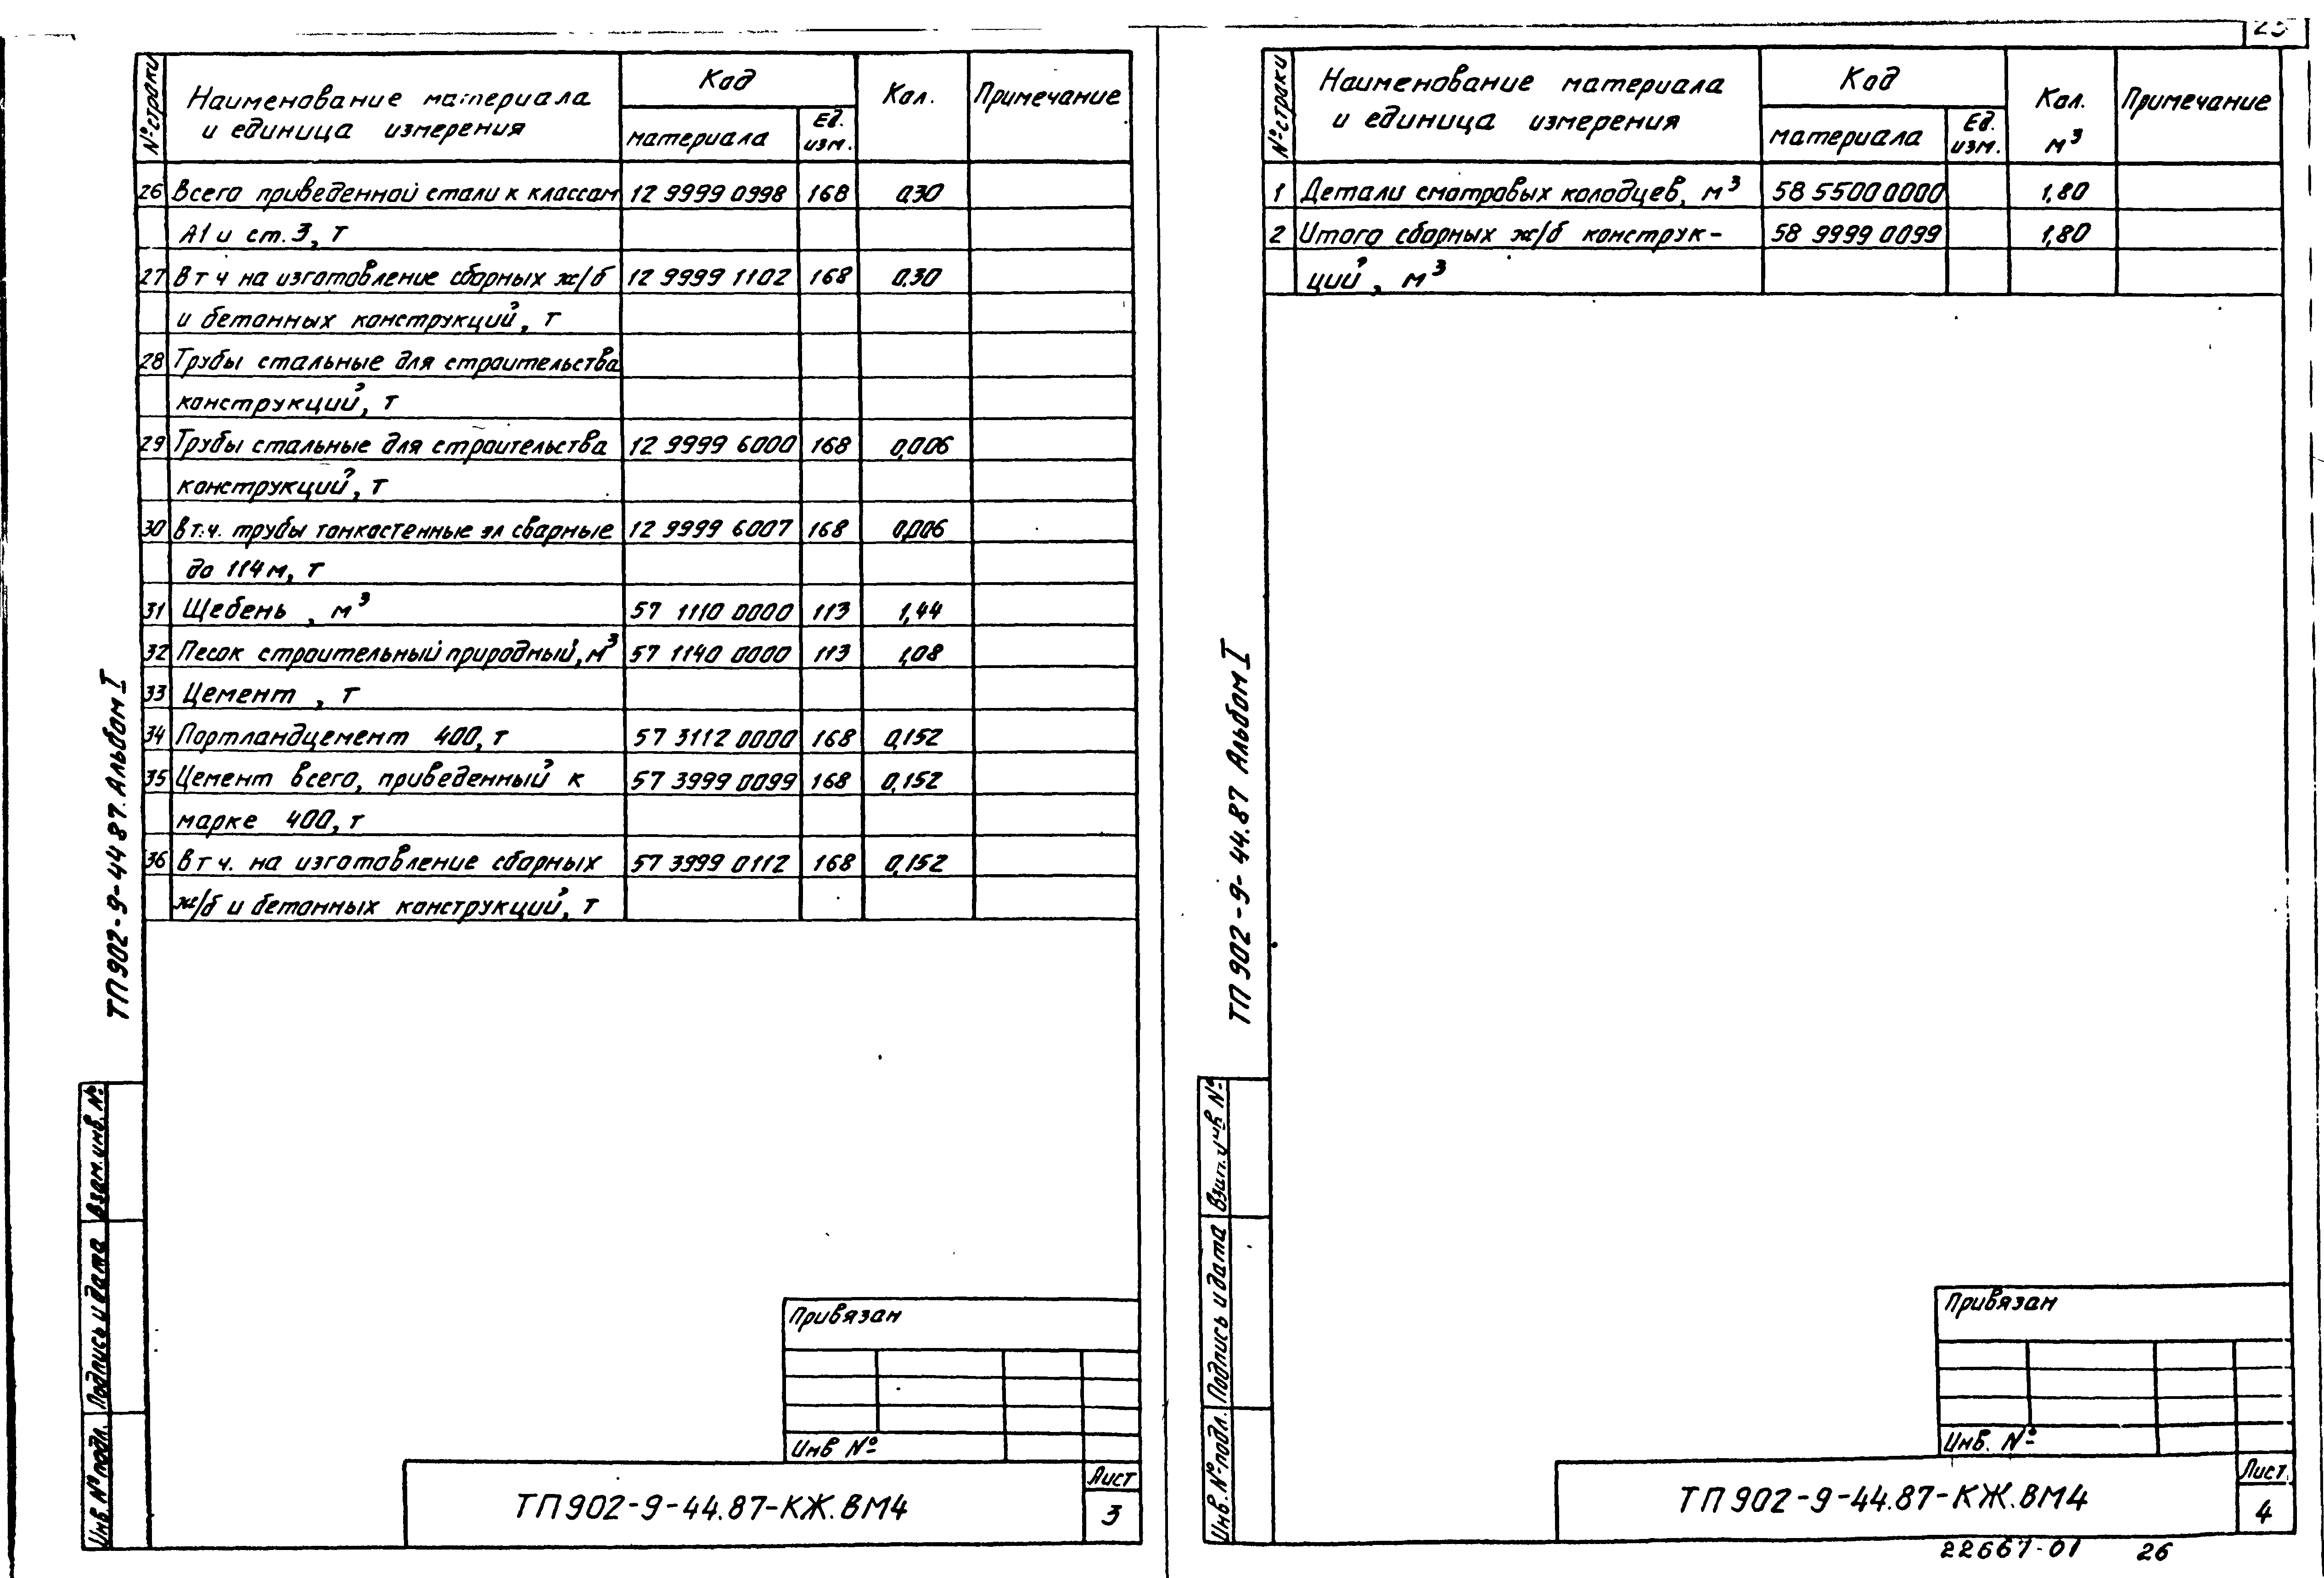 № строки
Наименование материала
и единица измерения
Код
материала
Ед.
изм.
Кол.
Примечание
26 Всего приведенной стали к классам 12 9999 0998 168 0,30
А1 и ст. 3, т
27 В т ч на изготовление сборных ж/б 12 9999 1102 168 0.30
и бетонных конструкций, т
28 Трубы стальные для строительства
конструкций, т
29 Трубы стальные для строительства 12 9999 6000 168 0,006
конструкций, т
30 В т.ч. трубы тонкостенные эл сварные 12 9999 6007 168 0,006
до 114м, т
31 Щебень , м³ 57 1110 0000 113 1,44
32 Песок строительный природный, м³ 57 1140 0000 113 1,08
33 Цемент , т
34 Портландцемент 400, т 57 3112 0000 168 0,152
35 Цемент всего, приведенный к 57 3999 0099 168 0,152
марке 400, т
36 В т ч. на изготовление сборных 57 3999 0112 168 0,152
ж/б и бетонных конструкций, т
ТП902-9-44 87. Альбом I
Взам. инв. №
Подпись и дата
Инв. № подл.
Привязан
Инв №
ТП902-9-44.87-КЖ.ВМ4
Лист
3
№ строки
Наименование материала
и единица измерения
Код
материала
Ед.
изм.
Кол.
м³
Примечание
1 Детали смотровых колодцев, м³ 58 5500 0000 1,80
2 Итого сборных ж/б конструк- 58 9999 0099 1,80
ций , м³
ТП 902-9-44.87 Альбом I
Взам. инв №
Подпись и дата
Инв. № подл.
Привязан
Инв. №
ТП902-9-44.87-КЖ.ВМ4
Лист
4
22667-01 26